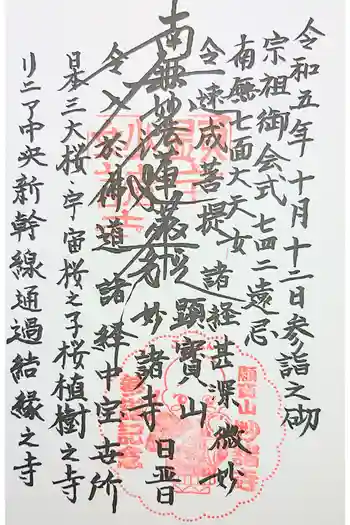 令和五年十月十二日参詣之砌
宗祖御会式七四二遠忌
南無七面大天女 諸経甚深微妙
令速成菩提 顕寳山
南無妙法蓮華経 妙諸寺 日晋
令入於佛道 諸経中宝世所
日本三大桜・宇宙桜之子桜植樹之寺
リニア中央新幹線通過結縁之寺